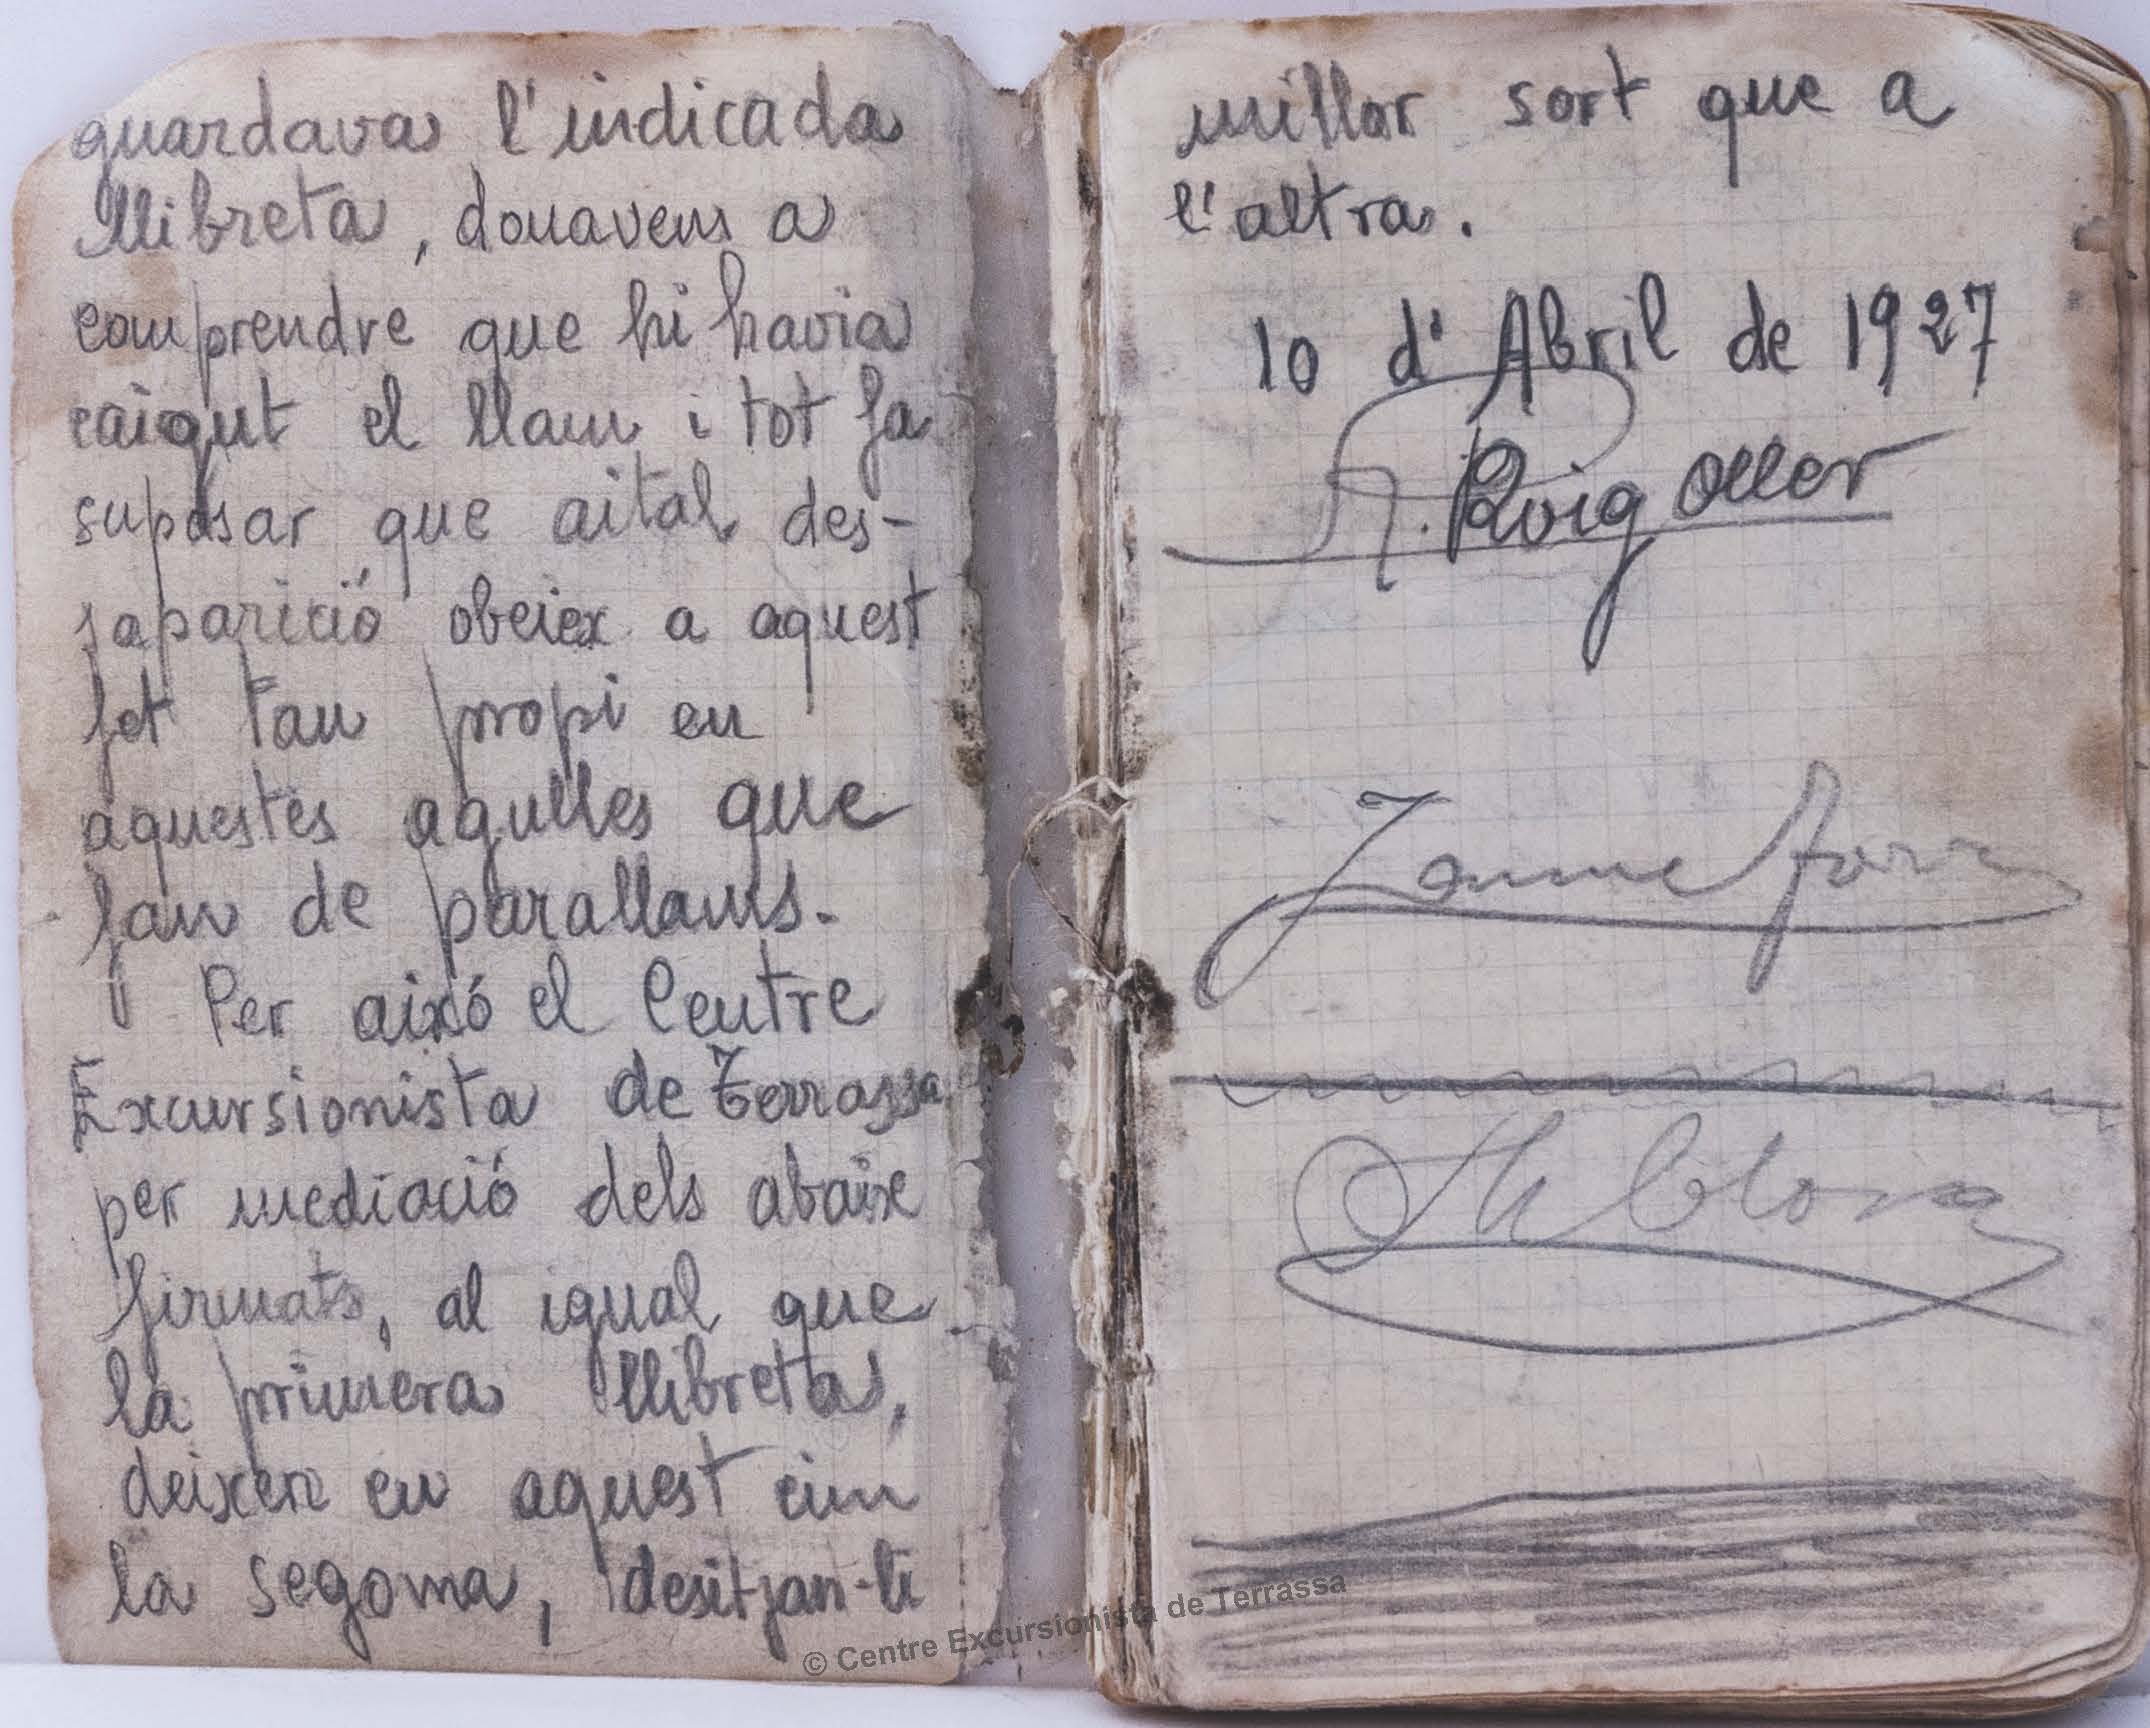 guardava l'indicada
llibreta, donavens a
comprendre que hi havia
caigut el llam i tot fa
suposar que aital des-
saparició obeiex a aquest
fet tan propi en
aquestes agulles que
fan de parallams.
Per aixó el Centre
Excursionista de Terrassa
per mediació dels abaix
firmats, al igual que
la primera llibreta,
deixen en aquest cim
la segona, desitjan-li
millor sort que a
l'altra.
10 d'Abril de 1927
Roig Oller
Jaume
© Centre Excursionista de Terrassa